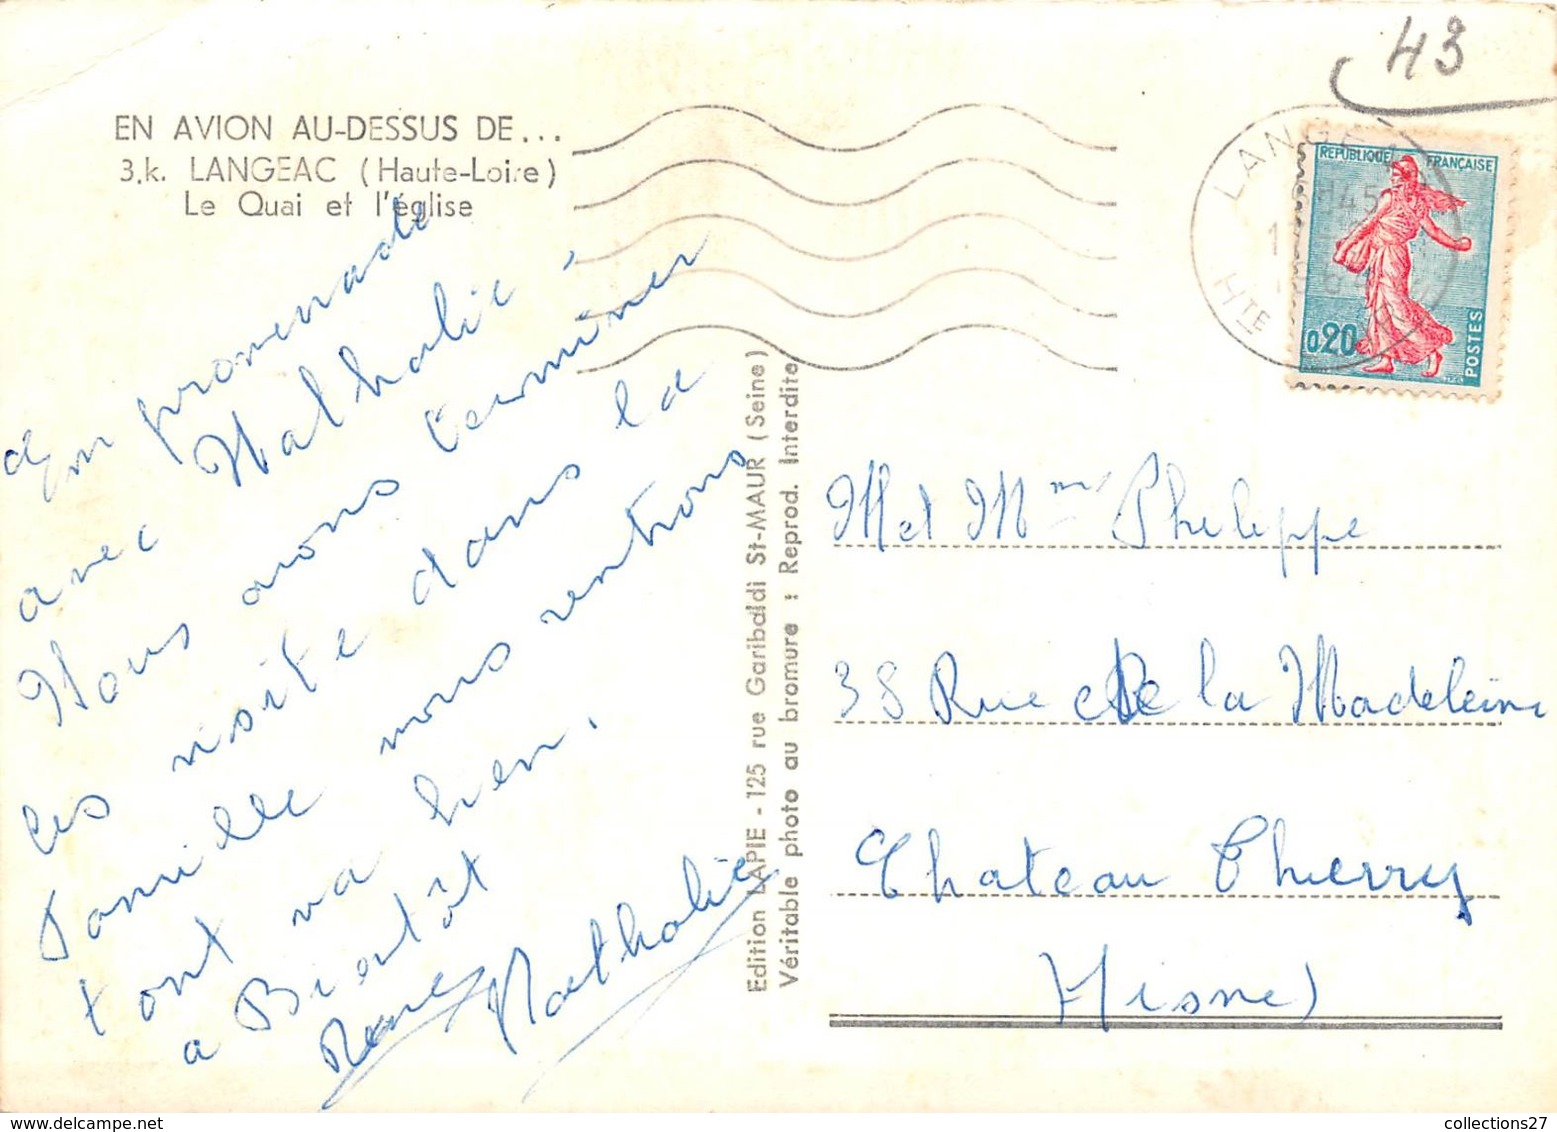 43
EN AVION AU-DESSUS DE...
3.k. LANGEAC (Haute-Loire)
Le Quai et l'église
LANGEAC
Hte
REPUBLIQUE FRANÇAISE
0,20
POSTES
En promenade
avec Nathalie
Nous avons terminer
les visite dans la
famille nous rentrons
tout va bien.
a Bientôt
René Nathalie
Edition LAPIE - 125 rue Garibaldi St-MAUR (Seine)
Véritable photo au bromure : Reprod. Interdite
M et Mme Philippe
38 Rue de la Madeleine
Chateau Thierry
Aisne)
collections27